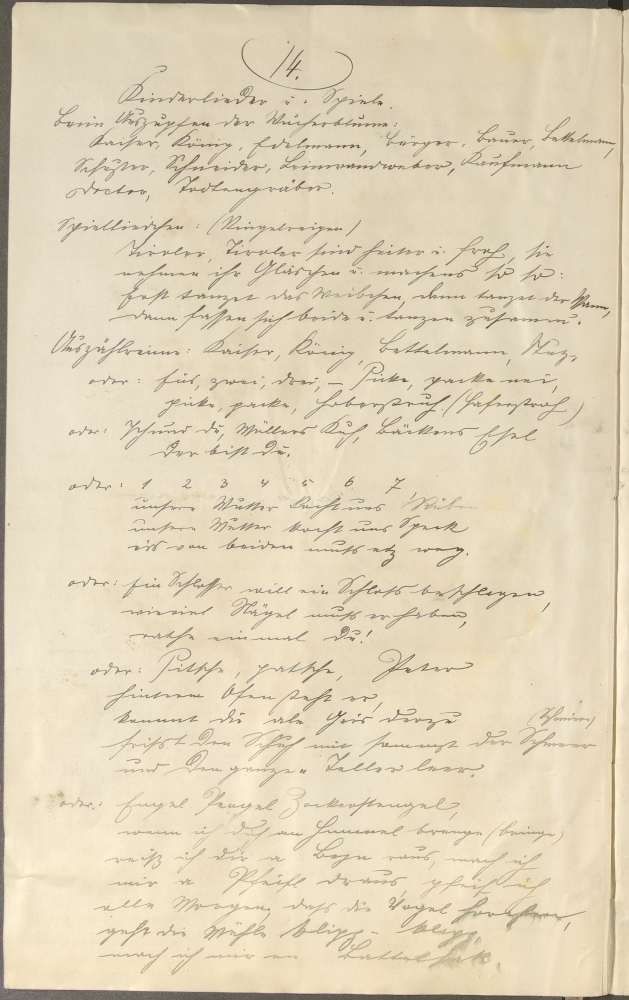 14.
Kinderlieder u. Spiele.
Beim Auszupfen der Wucherblume:
Kaiser, König, Edelmann, Bürger, Bauer, Bettelmann,
Schuster, Schneider, Leinwandweber, Kaufmann
Doctor, Todtengräber.
Spielliedchen: (Ringelreigen)
Tiroler, Tiroler sind heiter u. froh, sie
nehmen ihr Gläschen u. machens so so:
Erst tanzet das Weibchen, dann tanzet der Mann,
dann fassen sich beide u. tanzen zusamm.
Auszählreime: Kaiser, König, Bettelmann,
oder: Eins, zwei, drei, – Picke, packe nei,
picke, packe, Haberstruh (Haferstroh)
oder: du, Müllers Kuh, Bäckers Esel
der bist du.
oder: 1 2 3 4 5 6 7,
unsere Mutter kocht uns Rüben
unsere Mutter kocht uns Speck
eis von beiden muß etz weg.
oder: Ein Schlosser will ein Schloß beschlagen,
wieviel Nägel muß er haben,
rathe einmal du!
oder: Pitsche, patsche, Peter
hinterm Ofen steht er,
kommt die ale Geis derzu
frißt den Schuh mit samenzt der Schmeer
und den ganzen Teller leer.
oder: Engel Pengel Zockerstengel,
wenn ich dich an Hummel brenge (bringe)
reiß ich dir a Bein raus, mach ich
mir a Pfeifl draus, pfeif ich
alle Morgen, daß die Vögel
geht die Mühle klipp – klapp,
mach ich mir en Bättelsak.